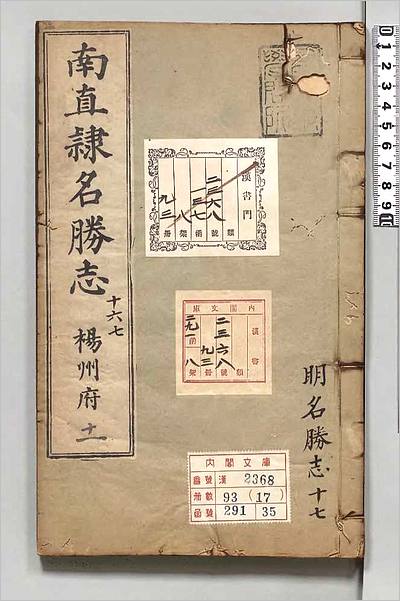 南直隷名勝志 十六七 楊州府 十一
明名勝志 十七
漢書門
二三六八 類
一三七 號
八 函
架
九三 冊
內閣文庫
漢書
二三六八 類 號
九三 冊
二九一 函
八 架
內閣文庫
番號 漢 2368
冊數 93 (17)
函號 291 35
0 1 2 3 4 5 6 7 8 9 10